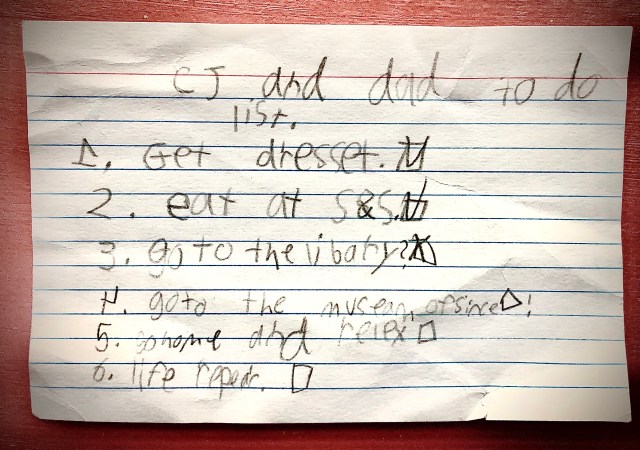 CJ and dad to do
list.
1. Get dresset.
2. eat at S&S.
3. go to the libary?
4. go to the museam of since!
5. go home and relex
6. life repear.